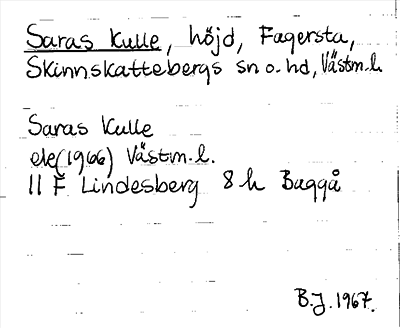 Saras Kulle, höjd, Fagersta,
Skinnskattebergs sn o. hd, Västm.l.
Saras Kulle
ek(1966) Västm.l.
11 F Lindesberg 8 h Baggå
B.J. 1967.